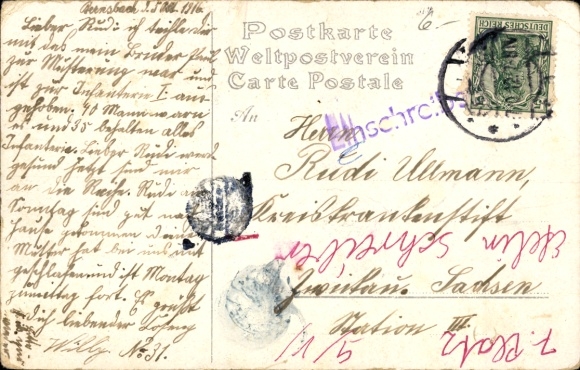 Bernsbach 3. Okt. 1916
Lieber Rudi ich teihle dir
mit das mein Bruder Paul
zur Musterung war und
ist zur Infanterie I. aus
gehoben. 40 Mann warn
es und 35 behalten alles
Infanterie. Lieber Rudi werd
gesund jetzt sind wir
an die Reihe. Rudi am
Sonntag sind gut nach
Hause gekommen deine
Mutter hat bei uns mit
geschlafen und ist Montag
Mittag fort. Es grüßt
dich liebender
Willy No 31.
Postkarte
Weltpostverein
Carte Postale
An
Einschreiben
DEUTSCHES REICH
Herrn
Rudi Ullmann,
Kreiskrankenstift
Zwickau. Sachsen
Station III.
Schreiber
7. Platz